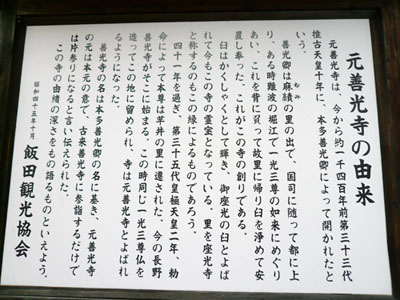 元善光寺の由来
元善光寺は、今から約一千四百年前第三十三代
推古天皇十年に、本多善光卿によって開かれたと
いう。
善光卿は麻績の里の出で、国司に随って都に上
り、ある時難波の堀江で一光三尊の如来にめぐり
あい、これを背に負って故里に帰り臼を浄めて安
置し奉った。これがこの寺の創りである。
臼はかくしゃくとして輝き、御座光の臼とよば
れて今もこの寺の霊宝となっている。里を座光寺
と称するのもこの縁によるものであろう。
四十一年を過ぎ、第三十五代皇極天皇二年、勅
命によって本尊は芋井の里に遷された。今の長野
善光寺がそこに始まる。この時同じ一光三尊仏を
造ってこの地に留められ、寺は元善光寺とよばれ
るようになった。
善光寺の名は本多善光卿の名に基き、元善光寺
の元は本元の意で、古来善光寺に参詣するだけで
は片参りになると言い伝えられた。
この寺の由緒の深さをもの語るものといえよう。
昭和四十五年十月
飯田観光協会